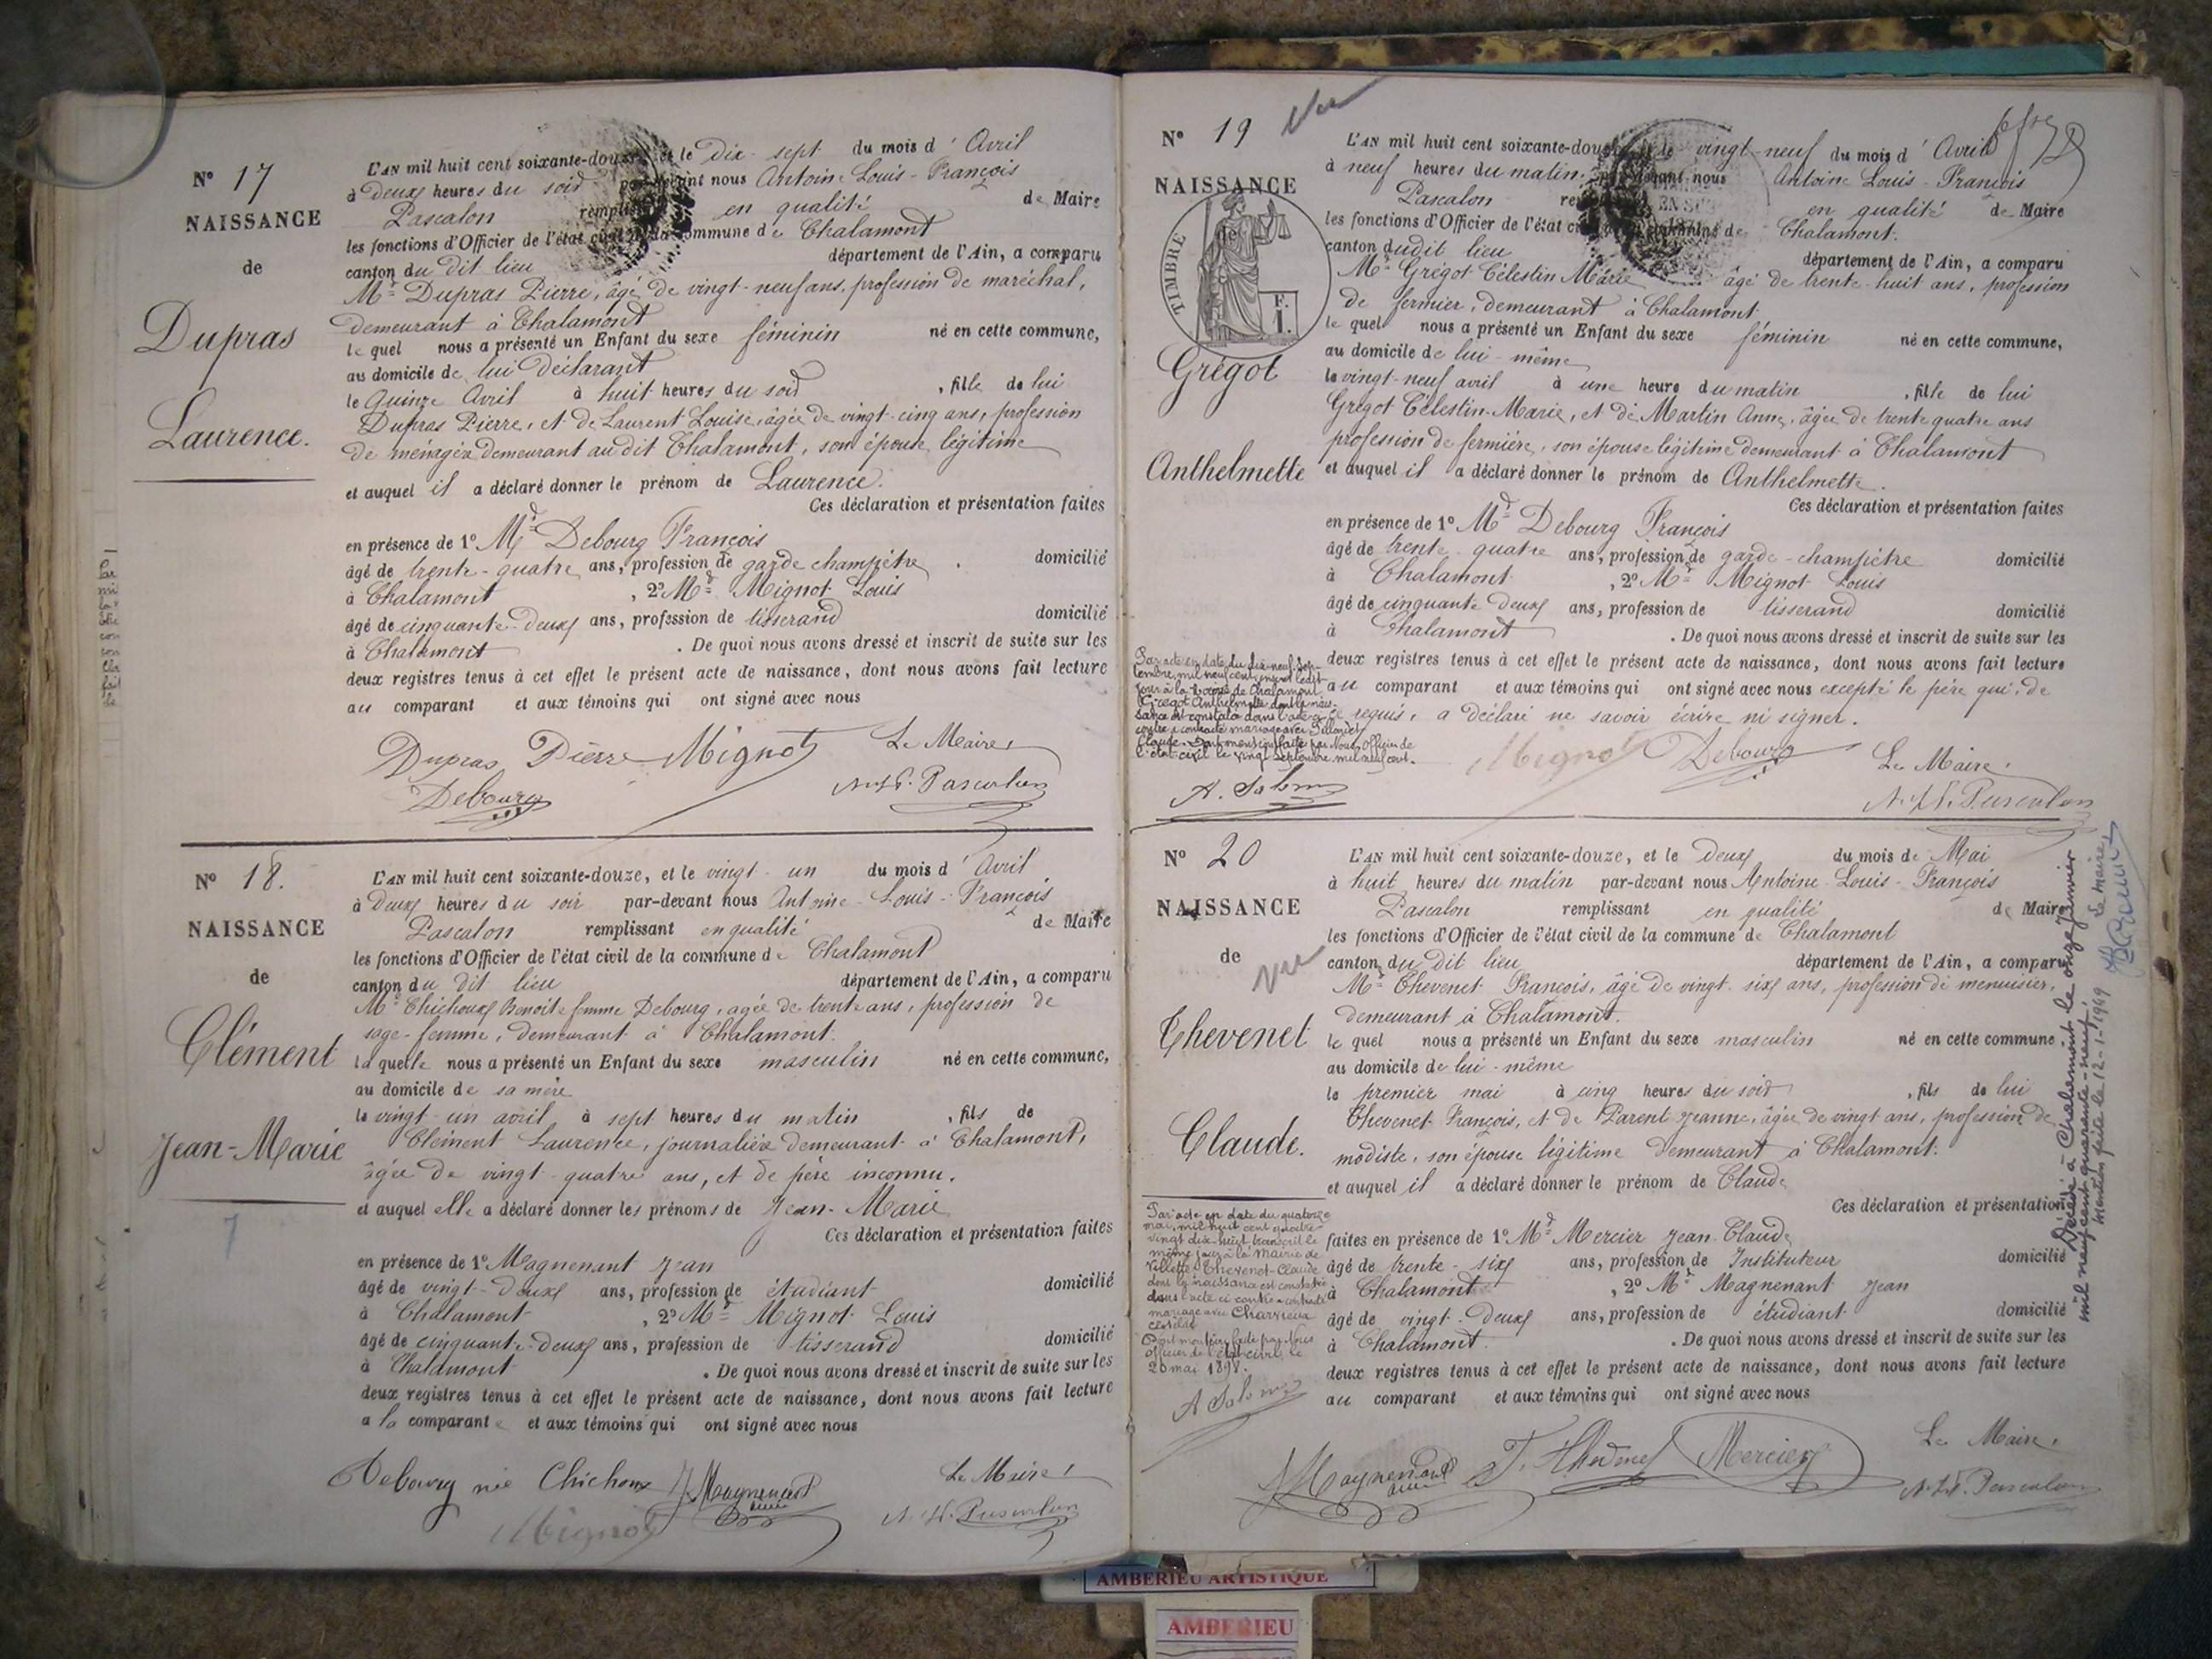 N° 17
NAISSANCE
de
Dupras
Laurence.
L'AN mil huit cent soixante-douze, et le dix-sept du mois d'Avril
à deux heures du soir par-devant nous Antoine Louis-François
Pascalon remplissant en qualité de Maire
les fonctions d'Officier de l'état civil de la commune de Chalamont
canton du dit lieu département de l'Ain, a comparu
Mr Dupras Pierre, âgé de vingt-neuf ans, profession de maréchal,
demeurant à Chalamont
le quel nous a présenté un Enfant du sexe féminin né en cette commune,
au domicile de lui déclarant
le Quinze Avril à huit heures du soir, fille de lui
Dupras Pierre, et de Laurent Louise, âgée de vingt-cinq ans, profession
de ménagère demeurant au dit Chalamont, son épouse légitime
et auquel il a déclaré donner le prénom de Laurence.
Ces déclaration et présentation faites
en présence de 1° Mr Debourg François
âgé de trente-quatre ans, profession de garde champêtre. domicilié
à Chalamont, 2° Mr Mignot Louis
âgé de cinquante-deux ans, profession de tisserand domicilié
à Chalamont. De quoi nous avons dressé et inscrit de suite sur les
deux registres tenus à cet effet le présent acte de naissance, dont nous avons fait lecture
au comparant et aux témoins qui ont signé avec nous
Dupras Pierre Mignot Le Maire,
Debourg A. L. F. Pascalon
N° 18.
NAISSANCE
de
Clément
Jean-Marie
7
L'AN mil huit cent soixante-douze, et le vingt-un du mois d'Avril
à deux heures du soir par-devant nous Antoine-Louis-François
Pascalon remplissant en qualité de Maire
les fonctions d'Officier de l'état civil de la commune de Chalamont
canton du dit lieu département de l'Ain, a comparu
Me Chichoux Benoite femme Debourg, agée de trente ans, profession de
sage-femme, demeurant à Chalamont.
la quelle nous a présenté un Enfant du sexe masculin né en cette commune,
au domicile de sa mère
le vingt-un avril à sept heures du matin, fils de
Clément Laurence, journalière demeurant à Chalamont,
âgée de vingt-quatre ans, et de père inconnu.
et auquel elle a déclaré donner les prénoms de Jean-Marie
Ces déclaration et présentation faites
en présence de 1° Magnenant Jean
âgé de vingt-deux ans, profession de étudiant domicilié
à Chalamont, 2° Mr Mignot Louis
âgé de cinquante-deux ans, profession de tisserand domicilié
à Chalamont. De quoi nous avons dressé et inscrit de suite sur les
deux registres tenus à cet effet le présent acte de naissance, dont nous avons fait lecture
a la comparante et aux témoins qui ont signé avec nous
Debourg née Chichoux J. Magnenant Le Maire,
Mignot A. L. F. Pascalon
N° 19 Vu
NAISSANCE
de
TIMBRE
F.
I.
Grégot
Anthelmette
L'AN mil huit cent soixante-douze, et le vingt-neuf du mois d'Avril
à neuf heures du matin, par-devant nous Antoine Louis-François
Pascalon remplissant en qualité de Maire
les fonctions d'Officier de l'état civil de la commune de Chalamont.
canton dudit lieu département de l'Ain, a comparu
Mr Grégot Célestin Marie âgé de trente-huit ans, profession
de fermier, demeurant à Chalamont
le quel nous a présenté un Enfant du sexe féminin né en cette commune,
au domicile de lui-même
le vingt-neuf avril à une heure du matin, fille de lui
Grégot Célestin-Marie, et de Martin Anne, âgée de trente quatre ans
profession de fermière, son épouse légitime demeurant à Chalamont
et auquel il a déclaré donner le prénom de Anthelmette.
Ces déclaration et présentation faites
en présence de 1° Mr Debourg François
âgé de trente-quatre ans, profession de garde-champêtre domicilié
à Chalamont, 2° Mr Mignot Louis
âgé de cinquante deux ans, profession de tisserand domicilié
à Chalamont. De quoi nous avons dressé et inscrit de suite sur les
deux registres tenus à cet effet le présent acte de naissance, dont nous avons fait lecture
au comparant et aux témoins qui ont signé avec nous excepté le père qui, de
ce requis, a déclaré ne savoir écrire ni signer.
Par acte en date du dix-neuf Sep-
tembre mil neuf cent, inscrit ledit
jour à la Mairie de Chalamont,
Grégot Anthelmette dont la nais-
sance est constatée dans l'acte ci-
contre a contracté mariage avec
Claude. Dont mention faite par Nous, Officier de
l'état-civil le vingt septembre mil neuf cent.
A. Salomo
Mignot Debourg Le Maire,
A. L. F. Pascalon
N° 20
NAISSANCE
de
Vu
Chevenet
Claude.
L'AN mil huit cent soixante-douze, et le deux du mois de Mai
à huit heures du matin par-devant nous Antoine-Louis-François
Pascalon remplissant en qualité de Maire
les fonctions d'Officier de l'état civil de la commune de Chalamont
canton du dit lieu département de l'Ain, a comparu
Mr Chevenet François, âgé de vingt-six ans, profession de menuisier,
demeurant à Chalamont.
le quel nous a présenté un Enfant du sexe masculin né en cette commune,
au domicile de lui-même
le premier mai à cinq heures du soir, fils de lui
Chevenet François, et de Parent Jeanne, âgée de vingt ans, profession de
modiste, son épouse légitime demeurant à Chalamont.
et auquel il a déclaré donner le prénom de Claude
Ces déclaration et présentation
faites en présence de 1° Mr Mercier Jean-Claude
âgé de trente-six ans, profession de Instituteur domicilié
à Chalamont, 2° Mr Magnenant Jean
âgé de vingt-deux ans, profession de étudiant domicilié
à Chalamont. De quoi nous avons dressé et inscrit de suite sur les
deux registres tenus à cet effet le présent acte de naissance, dont nous avons fait lecture
au comparant et aux témoins qui ont signé avec nous
Par acte en date du quatorze
mai, mil huit cent quatre-
vingt dix-huit, transcrit le
même jour à la Mairie de
Villette, Chevenet Claude
dont la naissance est constatée
dans l'acte ci contre a contracté
mariage avec Charvieux
Dont mention faite par Nous
Officier de l'état-civil, le
20 mai 1898.
A Salomo
J. Magnenant F. Chevenet Mercier Le Maire,
A. L. F. Pascalon
Décédé à Chalamont le onze janvier
mil neuf cent quarante-neuf.
Mention faite le 12-1-1949 Le Maire
AMBERIEU ARTISTIQUE
AMBERIEU